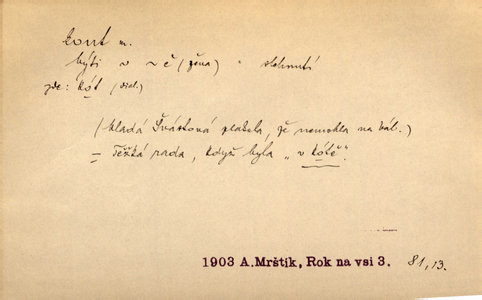 kout m.
býti v ~ě (žena) · slehnutí
zde: kót (dial.)
(Mladá Švástová plakala, že nemohla na bál.)
= Těžká rada, když byla „v kótě“.
1903 A. Mrštík, Rok na vsi 3. 81,13.